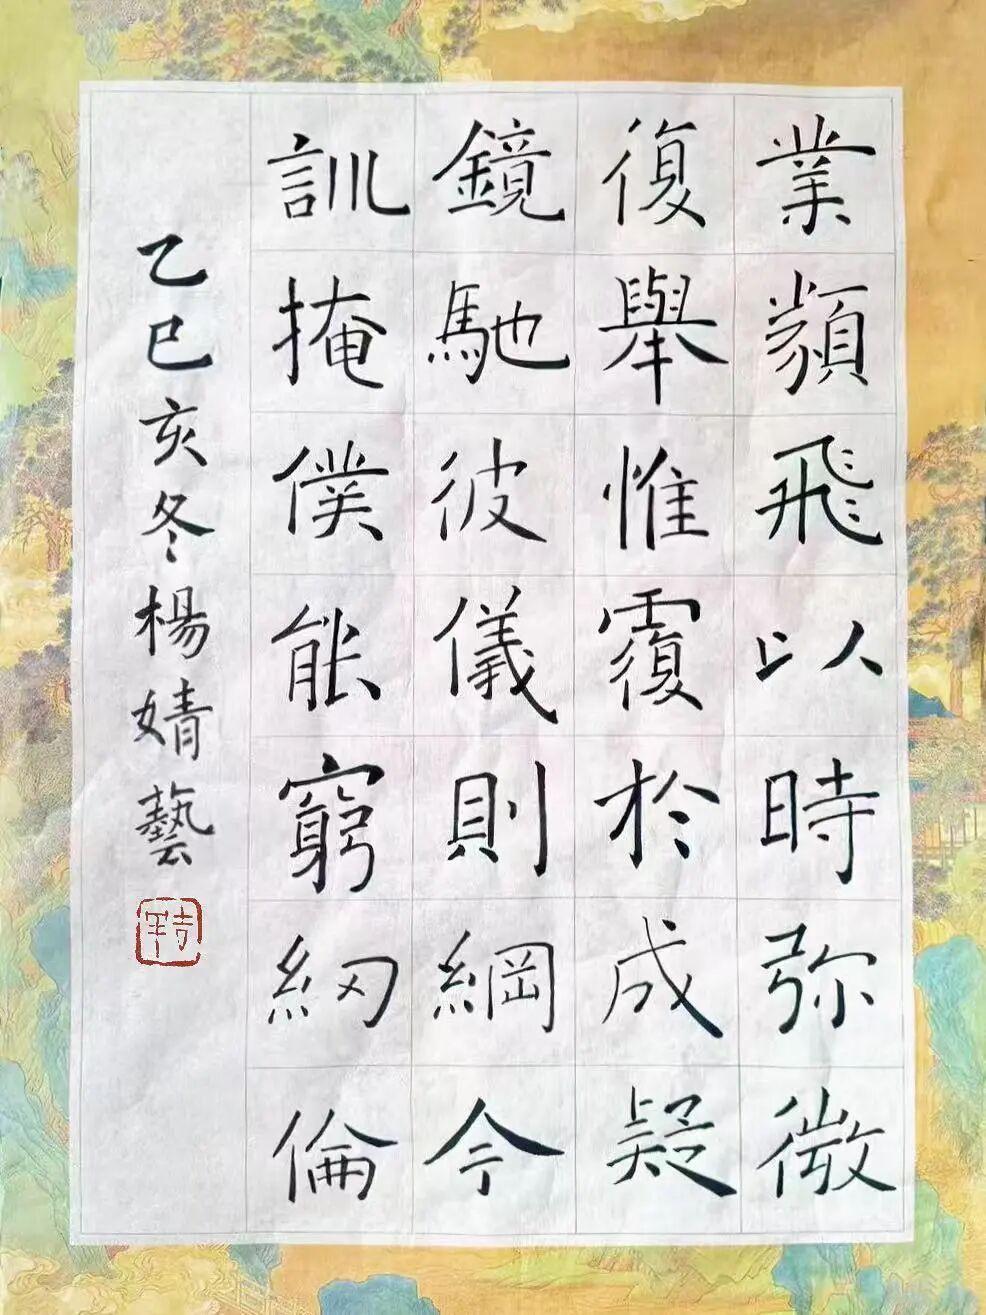 業飛以時弥微
復舉惟覆於成疑
鏡馳彼儀則綱今
訓掩僕能窮紉倫
乙巳亥冬楊婧藝